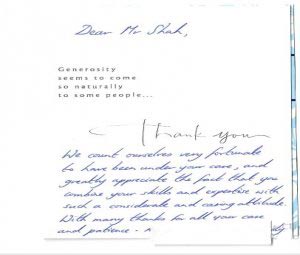 Dear Mr Shah,
Generosity
seems to come
so naturally
to some people...
Thank you
We count ourselves very fortunate
to have been under your care, and
greatly appreciate the fact that you
combine your skills and expertise with
such a considerate and caring attitude.
With many thanks for all your care
and patience -